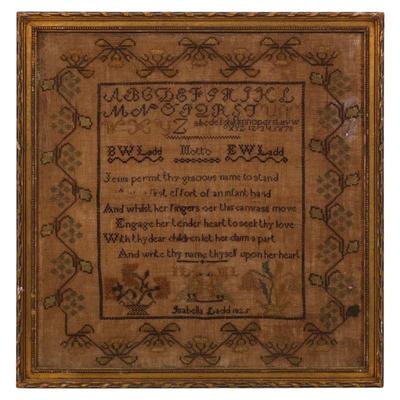 ABCDEFGHIKL
MNOPQRST
Z
BWLadd Motto EWLadd
Jesus permit thy gracious name to stand
first effort of an infant hand
And whilst her fingers oer this canvass move
Engage her tender heart to seek thy love
With thy dear children let her claim a part
And write thy name thyself upon her heart
Isabella Ladd 1825